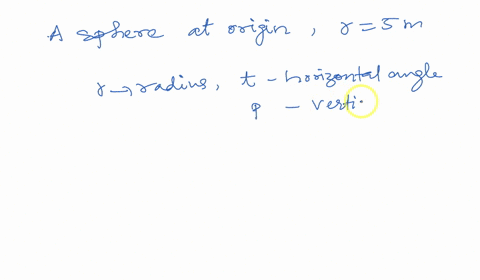 A sphere at origin, r = 5 m
r → radius, t - horizontal angle
φ - verti